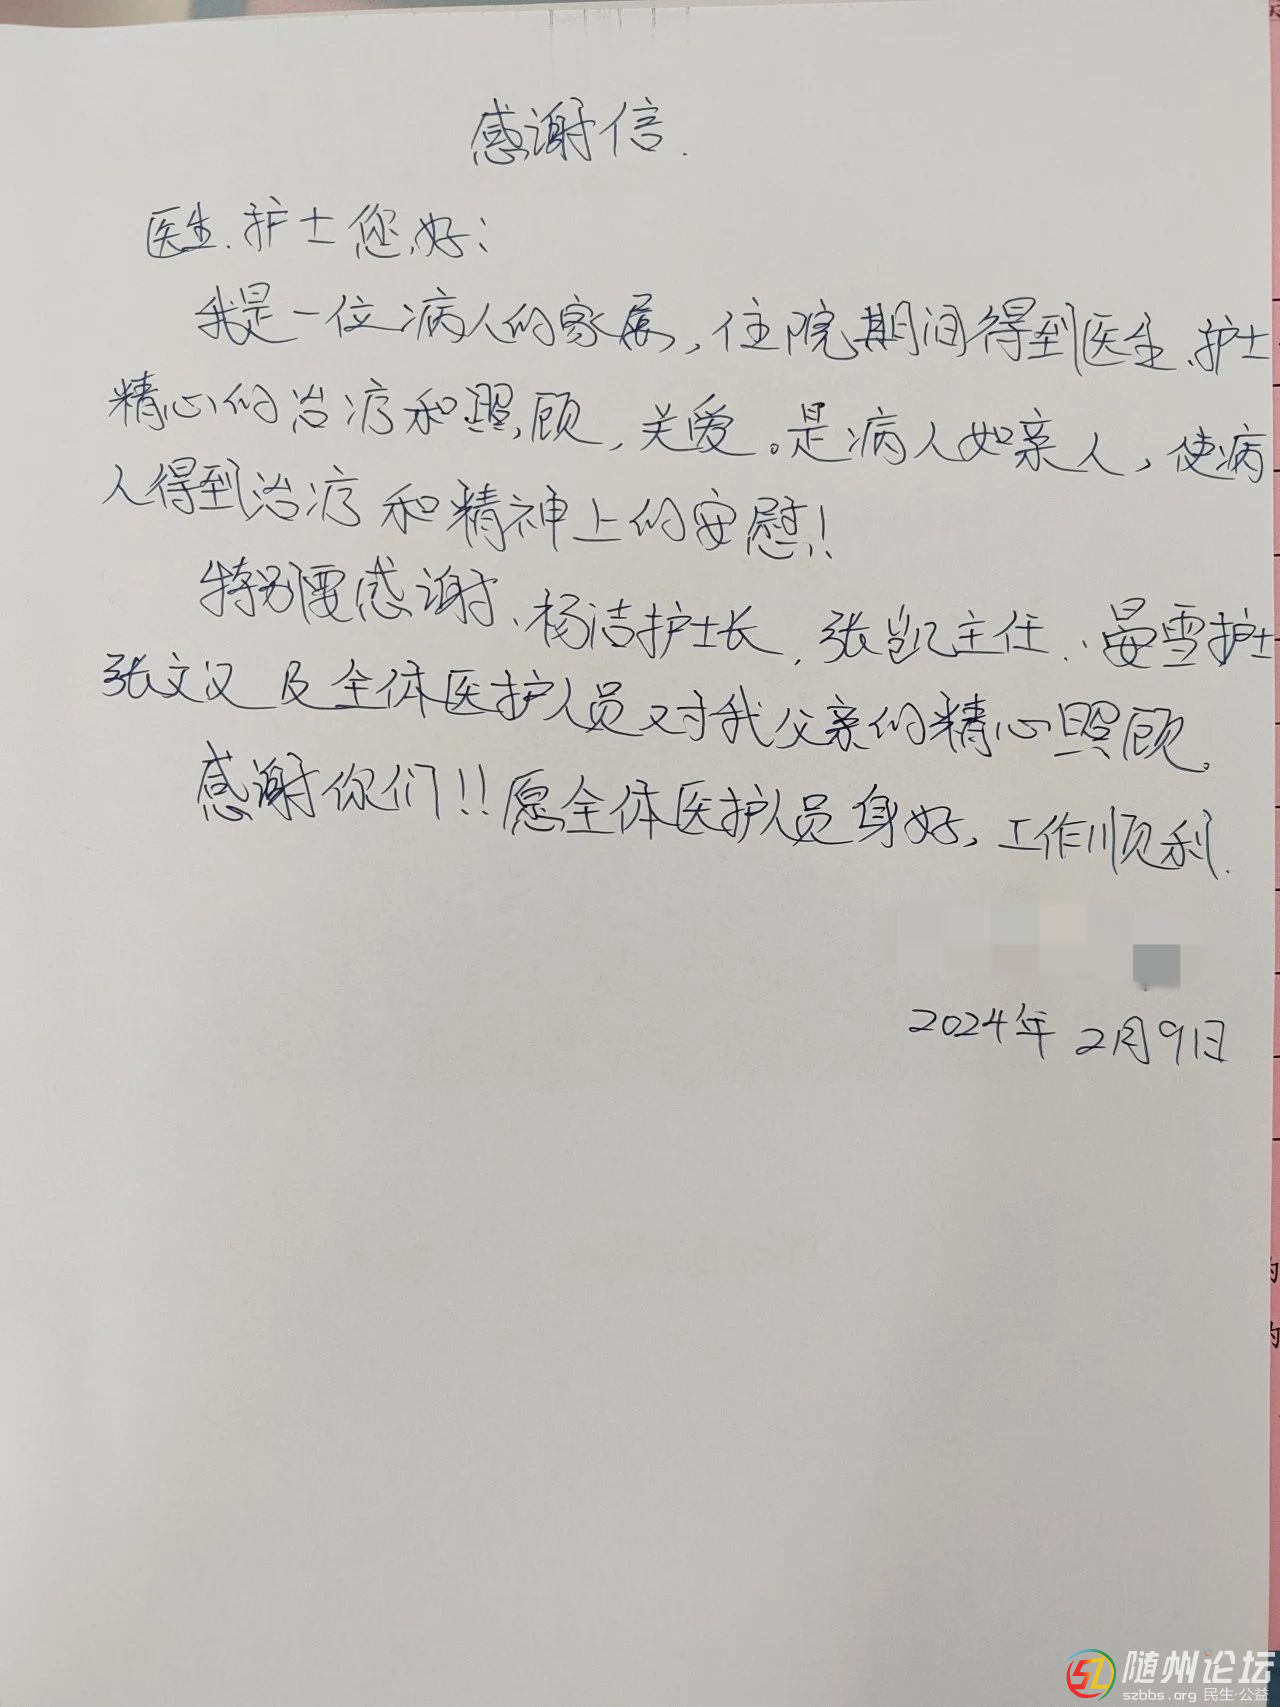 感谢信.
医生、护士您好：
我是一位病人的家属，住院期间得到医生、护士
精心的治疗和照顾，关爱。是病人如亲人，使病
人得到治疗和精神上的安慰！
特别要感谢、杨洁护士长，张凯主任、晏雪护士
张文义及全体医护人员对我父亲的精心照顾。
感谢你们！！愿全体医护人员身好，工作顺利.
2024年2月9日
为
为
随州论坛
szbbs.org 民生·公益